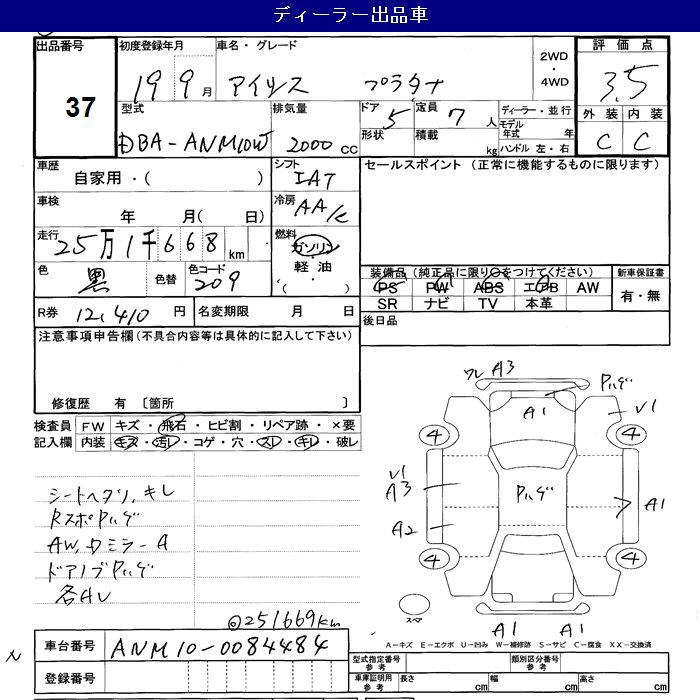 ディーラー出品車
出品番号 37
初度登録年月 19 9月
車名・グレード アイシス プラタナ
2WD・4WD
評価点 3.5
外装 C 内装 C
型式 DBA-ANM10W
排気量 2000cc
ドア 5 形状
定員 7人 積載 kg
ディーラー・並行
モデル年式 年
ハンドル 左・右
車歴 自家用・( )
シフト IAT
セールスポイント (正常に機能するものに限ります)
車検 年 月( 日)
冷房 AA/C
走行 25万1千668km
燃料 ガソリン・軽油・( )
色 黒 色替 色コード 209
装備品(純正品に限り○をつけてください) 新車保証書
PS PW ABS エアB AW 有・無
SR ナビ TV 本革
R券 12,410円 名変期限 月 日
後日品
注意事項申告欄(不具合内容等は具体的に記入して下さい)
修復歴 有 〔箇所 〕
検査員 FW キズ・飛石・ヒビ割・リペア跡・×要
記入欄 内装 キズ・汚レ・コゲ・穴・スレ・キレ・破レ
シートヘタリ、キレ
RスポPハゲ
AW、ウミラーA
ドアノブPハゲ
各AU
◎251669km
ワレ A3
Pハゲ
A1
V1
4 4
V1
A3
Pハゲ
A1
A2
4 4
スペア
A1 A1
A-キズ E-エクボ U-凹み W-補修跡 S-サビ C-腐食 XX-交換済
車台番号 ANM10-0084484
登録番号
型式指定番号 参考 類別区分番号 参考
車庫証明用 参考 長さ cm 幅 cm 高さ cm